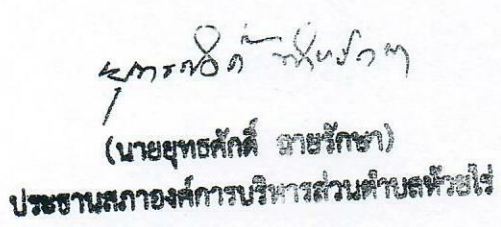 (นายยุทธศักดิ์ ลายรักษา)
ประธานสภาองค์การบริหารส่วนตำบลห้วยไร่